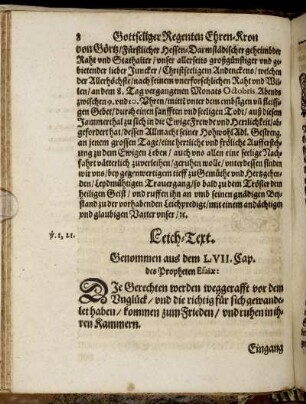 8 Gottseliger Regenten Ehren-Kron
von Görtz/Fürstlicher Hessen-Darmstädischer geheimbder
Raht und Stathalter/unser allerseits großgünstiger und ge-
bietender lieber Juncker/Christseeligem Andenckens/welchen
der Allerhöchste/nach seinem unerforschlichen Raht und Wil-
len/an dem 8. Tag vergangenen Monats Octobris, Abends
zwischen 9. und 10. Uhren/mitten unter dem embsigen und fleissi-
gen Gebet/durch einen sanfften und seeligen Todt/auß diesem
Jammerthal zu sich in die Ewige Frewde und Herrlichkeit/ab-
gefordert hat/dessen Allmacht seiner Hohwohl Adl. Gestreng.
an jenem grossen Tage/eine herrliche und fröliche Aufferste-
hung zu dem Ewigen Leben/auch uns allen eine seelige Nach-
fahrt vätterlich zuverleihen/geruhen wolle/unterdessen finden
wir uns/bey gegenwertigem tieff zu Gemühte und Hertzgehen-
den/Leydmühtigen Trauergang/so bald zu dem Tröster dem
heiligen Geist/und ruffen ihn an umb seinen gnädigen Bey-
stand zu der vorhabenden Leichpredigt/mit einem andächtigen
und glaubigen Vatter unser/ꝛc.
Leich-Text.
Genommen aus dem LVII. Cap.
des Propheten Esaiæ:
DJe Gerechten werden weggerafft vor dem
Unglück/und die richtig für sich gewande-
let haben/kommen zum Frieden/und ruhen in ih-
ren Kammern.
Eingang